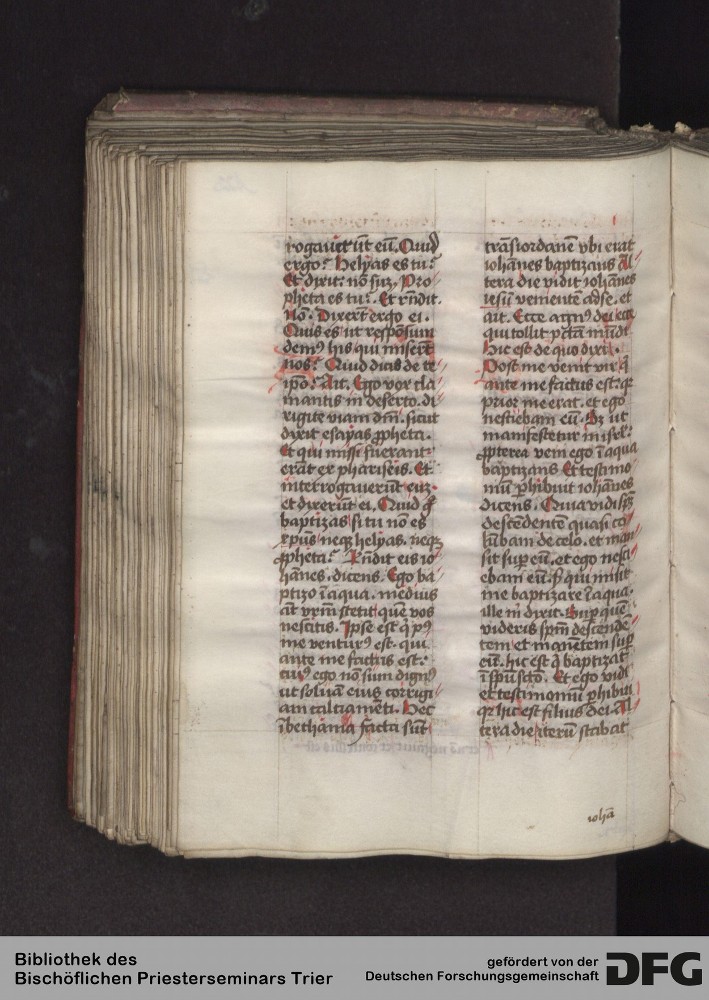 rogaueṙūt eū. Quid
ergo? Helyas es tu?
Et dixit: nō suz. Pro-
pheta es tu?. Et rn̄dit.
Nō. Dixerūt ergo ei.
Quis es ut respōsum
demꝰ his qui miserūt
nos? Quid dicis de te
ip̄o? Ait. Ego vox cla
mantis in deserto. di
rigite viam dn̄i. sicut
dixit esayas ꝓpheta.
Et qui missi fuerant
erāt ex phariseis. Et
interrogauerūt euz.
et dixerūt ei. Quid gͦ
baptizas si tu nō es
xp̄us neqꝫ helyas. neqꝫ
ꝓpheta? Rn̄dit eis io
hānes. dicens. Ego ba
ptizo ī aqua. medius
aūt vr̄m stetit quē vos
nescitis. Ipse est q̄ pꝰ
me venturꝰ est. qui
ante me factus est.
cuiꝰ ego nō sum dignꝰ
ut soluā eius corrigi
am calciamēti. Hec
ī bethania facta sūt
trāsiordanē vbi erat
iohānes baptizans Al
tera die vidit iohānes
iesū venientē ad se. et
ait. Ecce agnꝰ dei ecce
qui tollit pctā mūdi
hic est de quo dixi.
Post me venit vir q̄
ante me factus est: qꝛ
prior me erat. et ego
nesciebam eū. Sꝫ ut
manifestetur in isrl̄.
ꝓpterea veni ego ī aqua
baptizans Et testimo
niū ꝑhibuit iohānes
dicens. Quia vidi sp̄m
descēdentē quasi co
lūbam de celo. et man
sit suꝑ eū. et ego nesci
ebam eū. sꝫ qui misit
me baptizare ī aqua.
ille m̄ dixit. Suꝑ quē
videris sp̄m descende
tem et manētem suꝑ
eū. hic est q̄ baptizat
ī sp̄u scō. Et ego vidi
et testimoniū ꝑhibui
qꝛ hic est filius dei. Al
tera die iterū stabat
iohā
Bibliothek des
Bischöflichen Priesterseminars Trier
gefördert von der
Deutschen Forschungsgemeinschaft
DFG